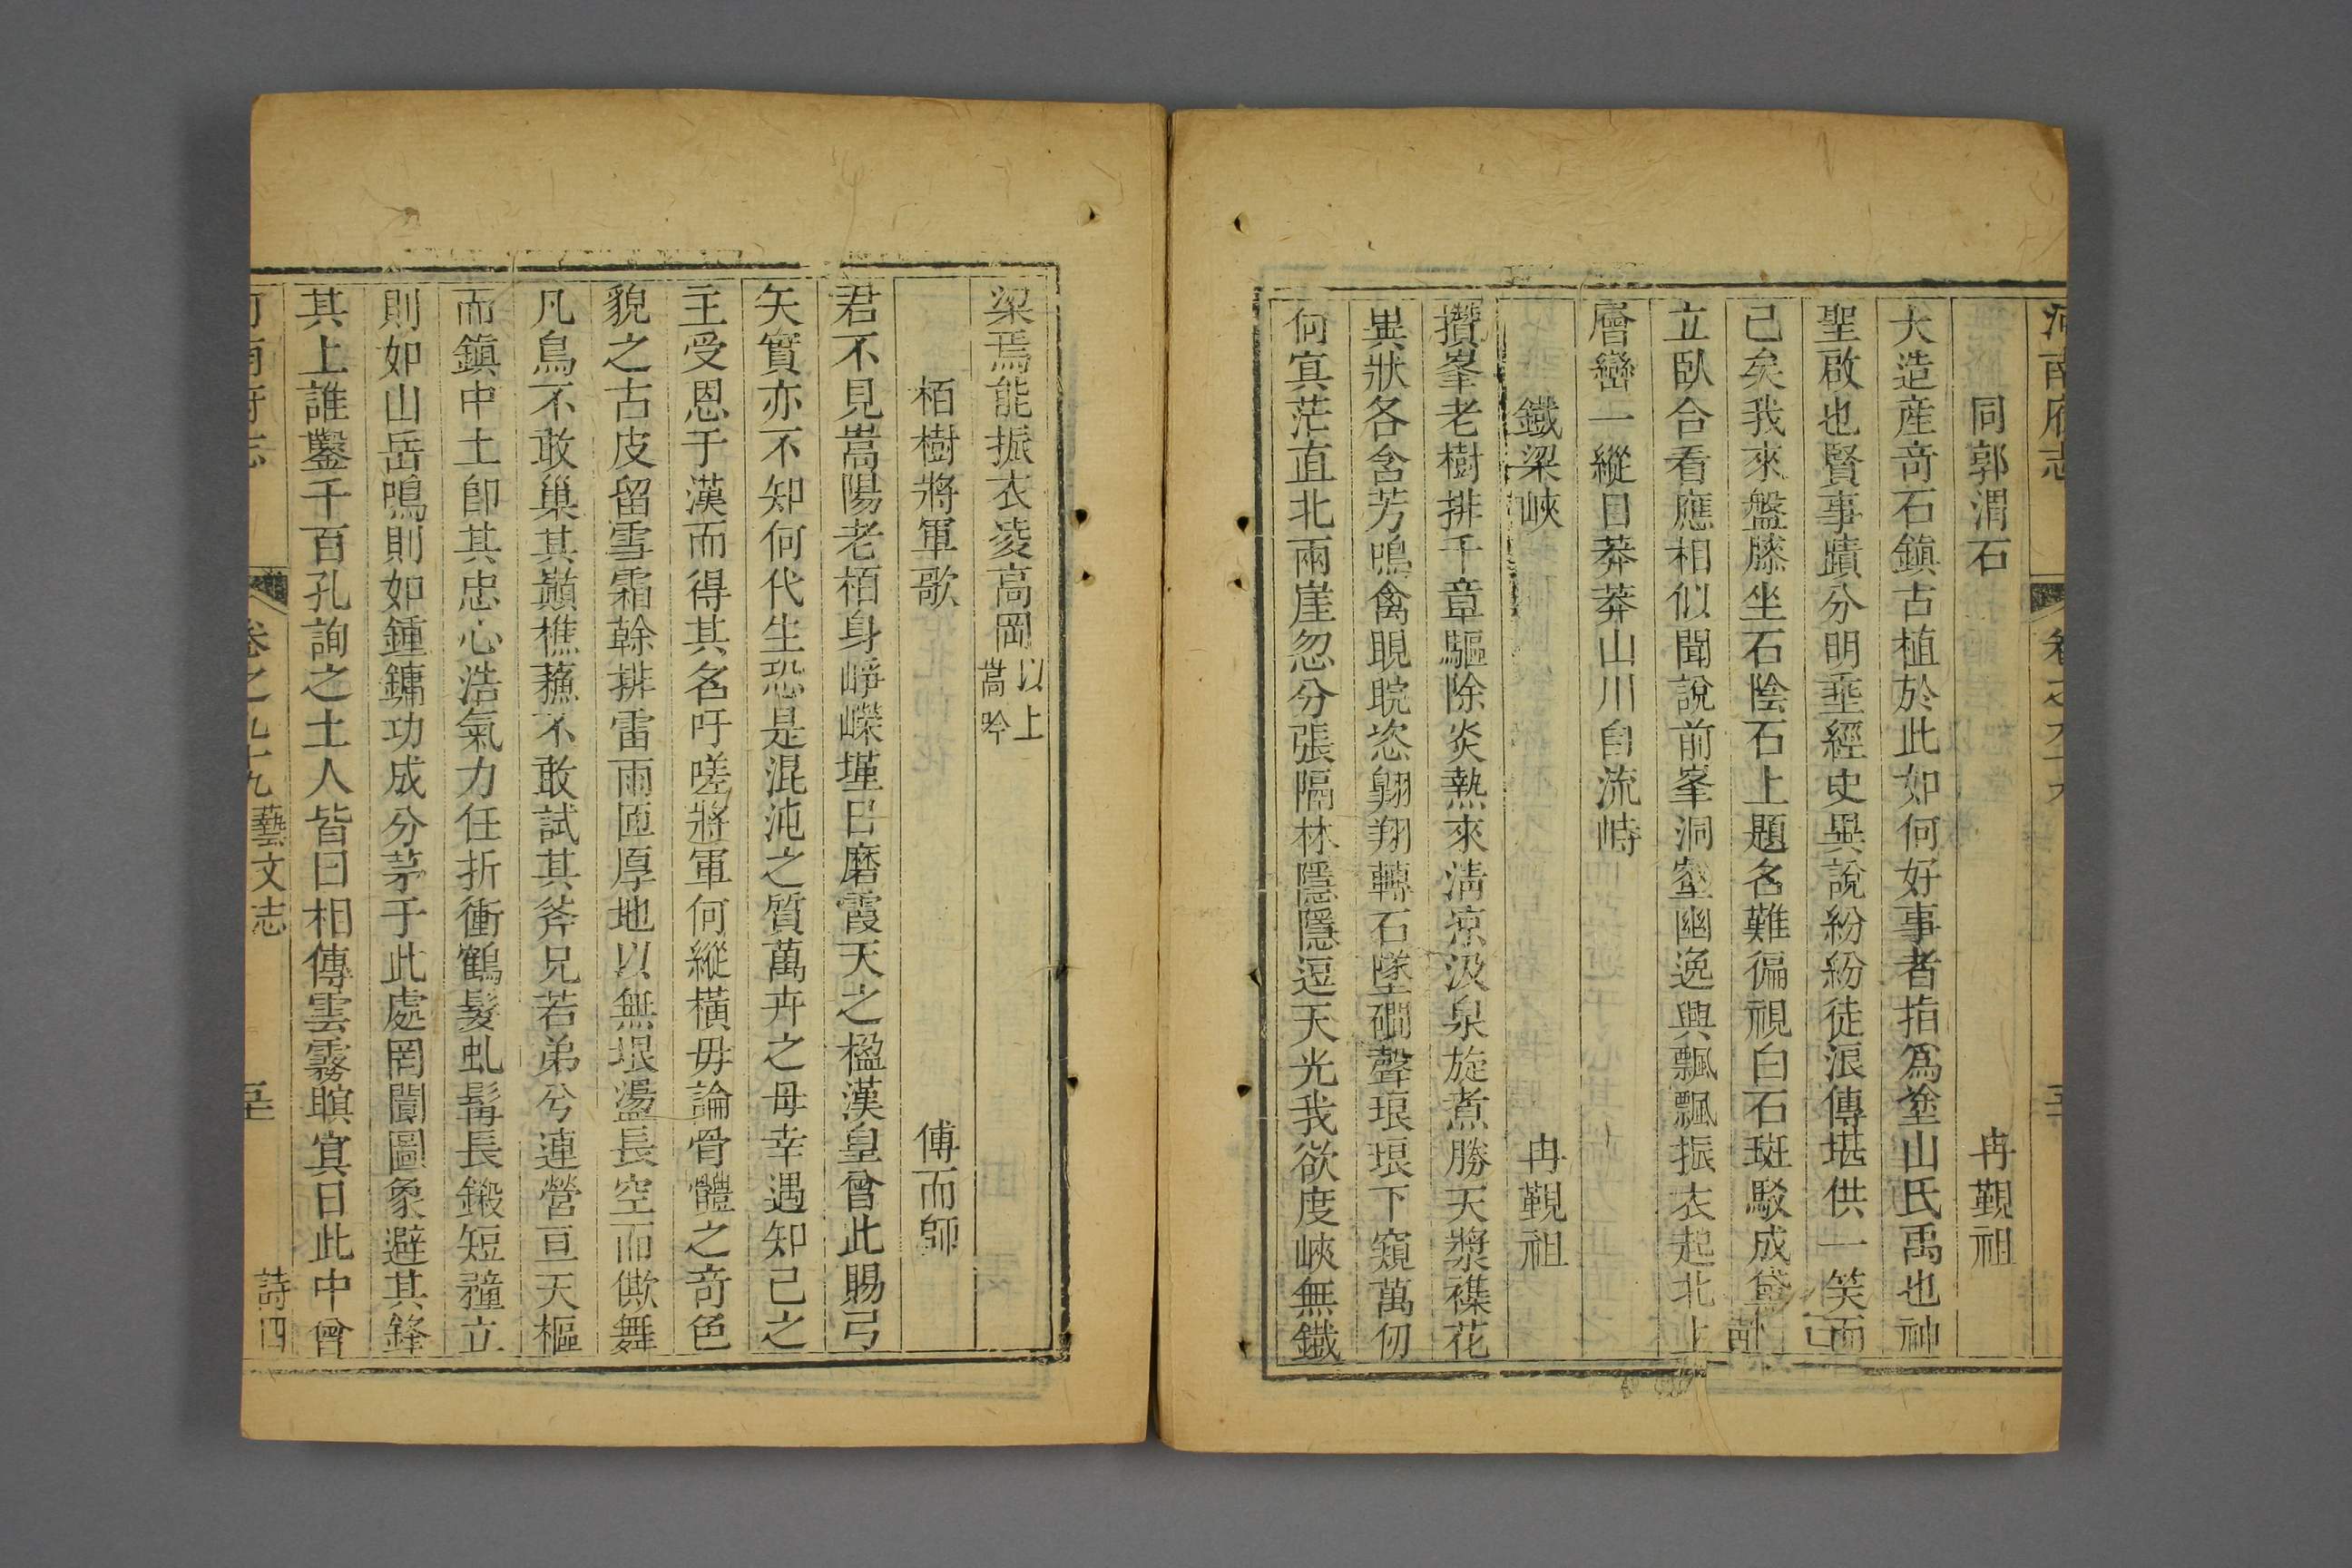 河南府志 卷之九十九
同郭渭石 冉覲祖
大造産竒石鎮古植於此如何好事者指爲塗山氏禹也神
聖啟也賢事蹟分明垂經史異說紛紛徒浪傳堪供一笑而
已矣我來盤膝坐石陰石上題名難徧視白石斑駁成黛
立臥合看應相似聞說前峯洞壑幽逸興飄飄振衣起北上
層巒一縱目莽莽山川自流峙
鐵梁峽 冉覲祖
攢峯老樹排千章驅除炎熱來淸凉汲泉旋煮勝天漿襍花
異狀各含芳鳴禽睍睆恣翺翔轉石墜磵聲琅琅下窺萬仞
何冥茫直北兩崖忽分張隔林隱隱逗天光我欲度峽無鐵
梁焉能振衣凌高岡以上嵩吟
栢樹將軍歌 傅而師
君不見嵩陽老栢身崢嶸墐日磨霞天之楹漢皇曾此賜弓
矢實亦不知何代生恐是混沌之質萬卉之母幸遇知己之
主受恩于漢而得其名吁嗟將軍何縱橫毋論骨體之竒色
貌之古皮留雪霜榦排雷雨匝厚地以無垠盪長空而僛舞
凡鳥不敢巢其巔樵蘓不敢試其斧兄若弟兮連營亘天樞
而鎮中土卽其忠心浩氣力任折衝鶴髮虬髯長鍛短穜立
則如山岳鳴則如鍾鏞功成分茅于此處罔聞圖象避其鋒
其上誰鑿千百孔詢之土人皆曰相傳雲霧瞑冥日此中曾
河南府志 卷之九十九 藝文志 詩四